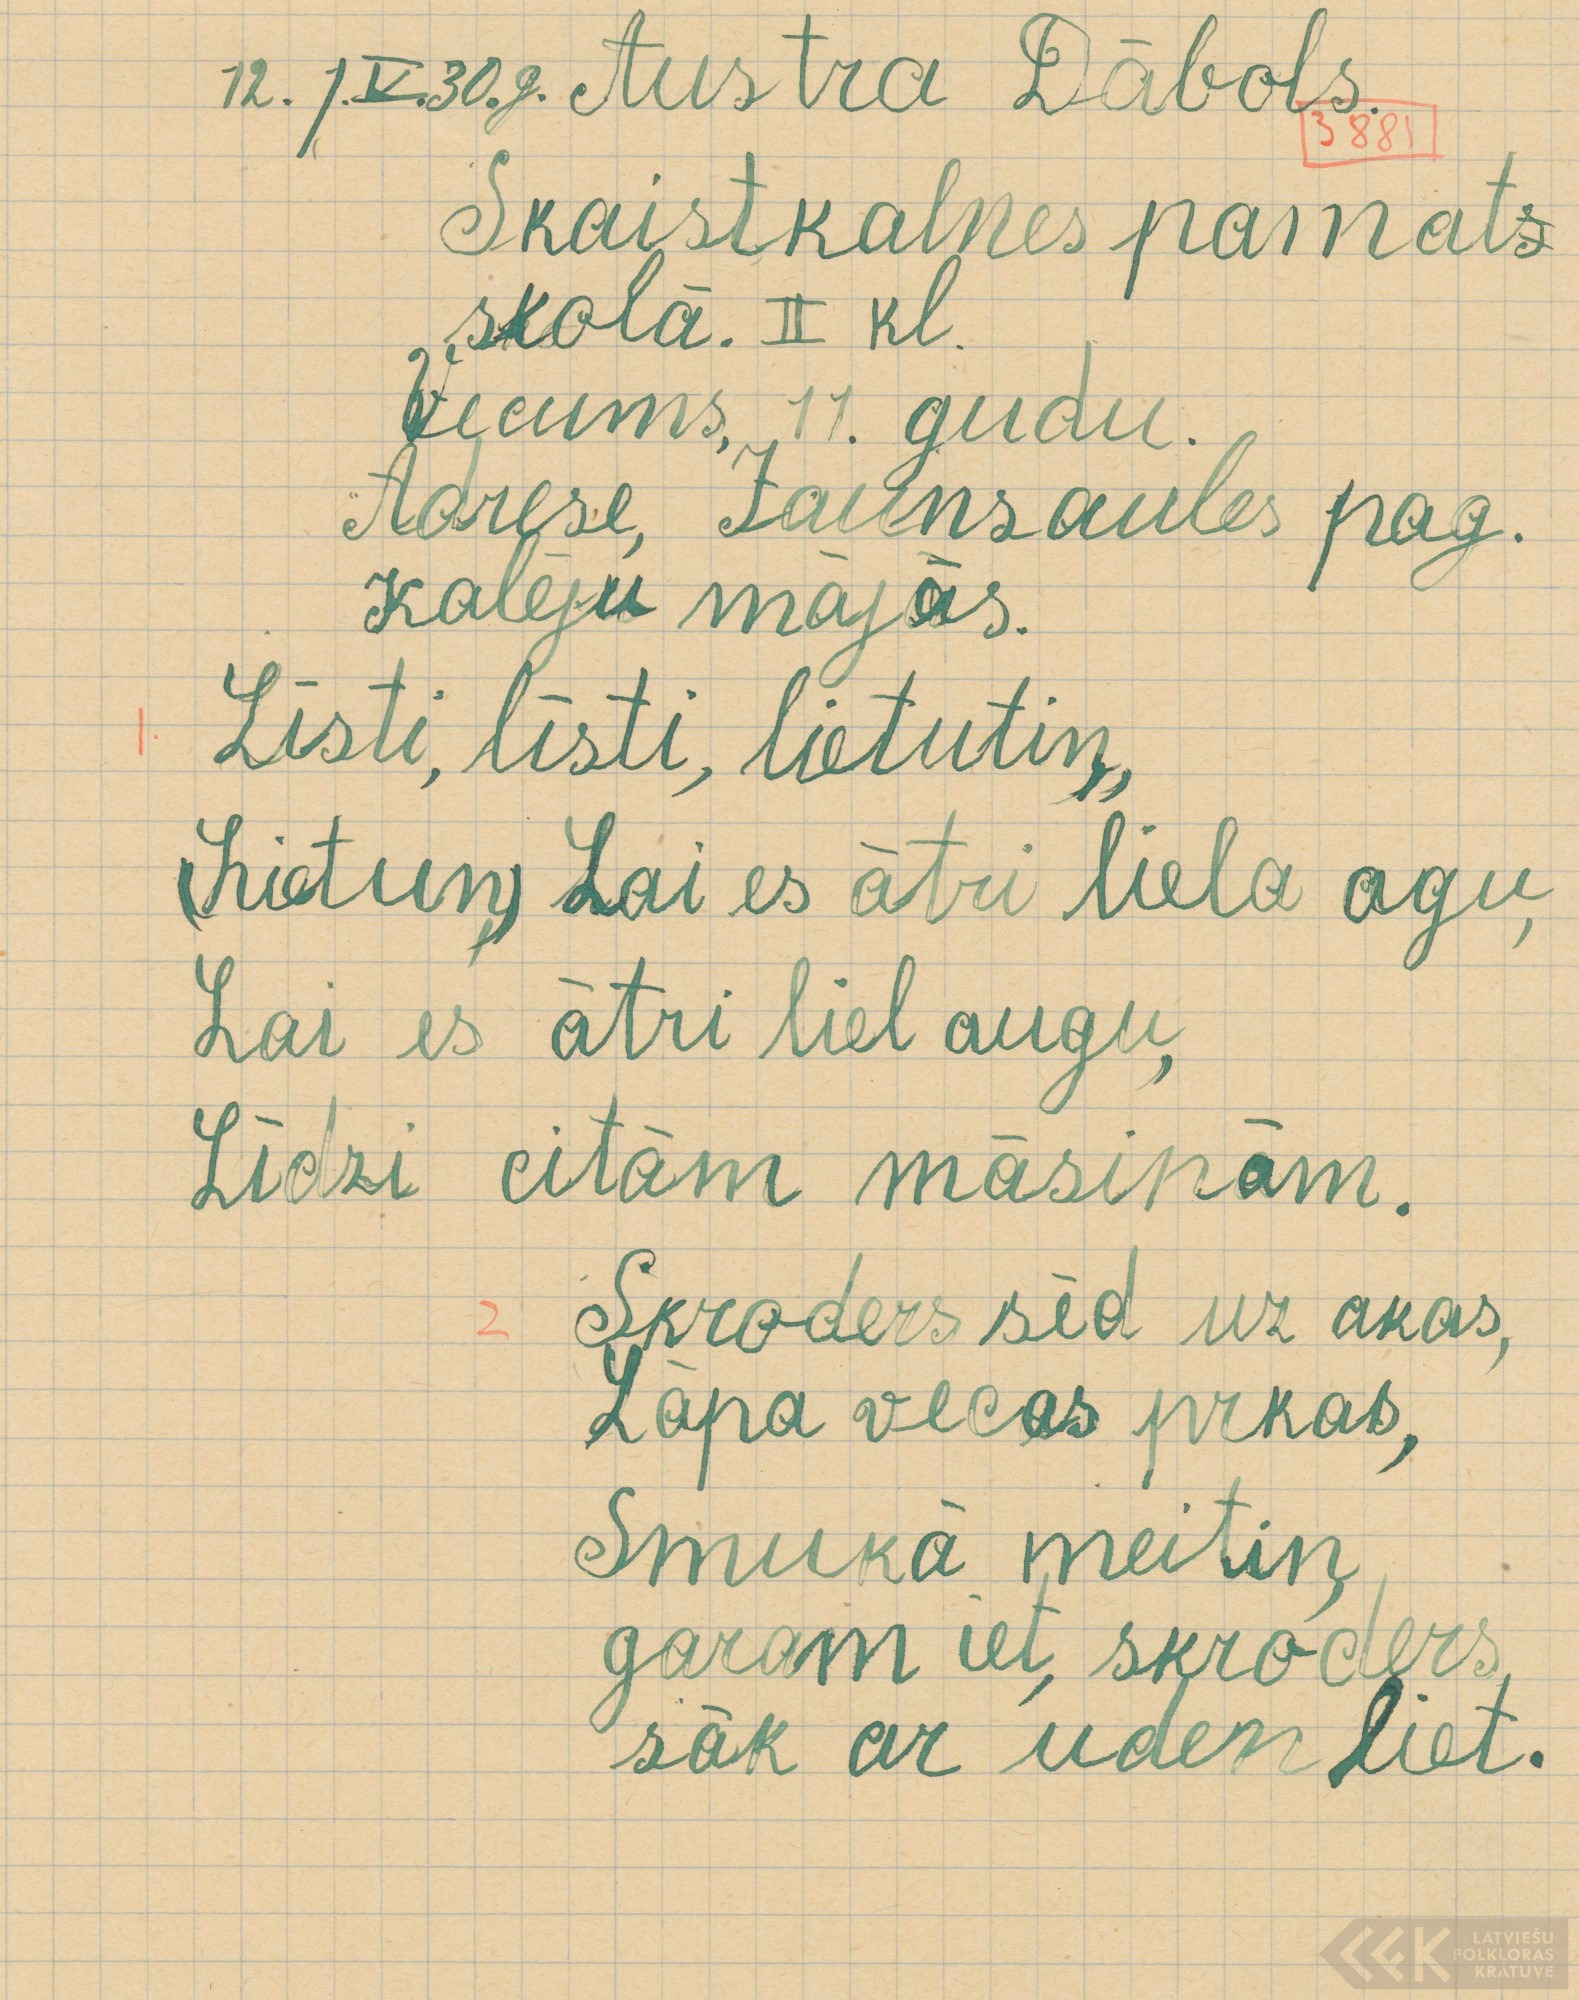 12. 1.V.30.g. Austra Dābols.
3881
Skaistkalnes pamats
skolā. II kl.
Vecums, 11. gudu.
Adrese, Jaunsaules pag.
Kalēju mājās.
1. Līsti, līsti, lietutiņ,
(Lietuņ) Lai es ātri liela agu,
Lai es ātri liel augu,
Līdzi citām māsinām.
2 Skroders sēd uz akas,
Lāpa vecas prkas,
Smukā meitiņ
garam iet, skroders
sāk ar uden liet.
LATVIEŠU
FOLKLORAS
KRĀTUVE